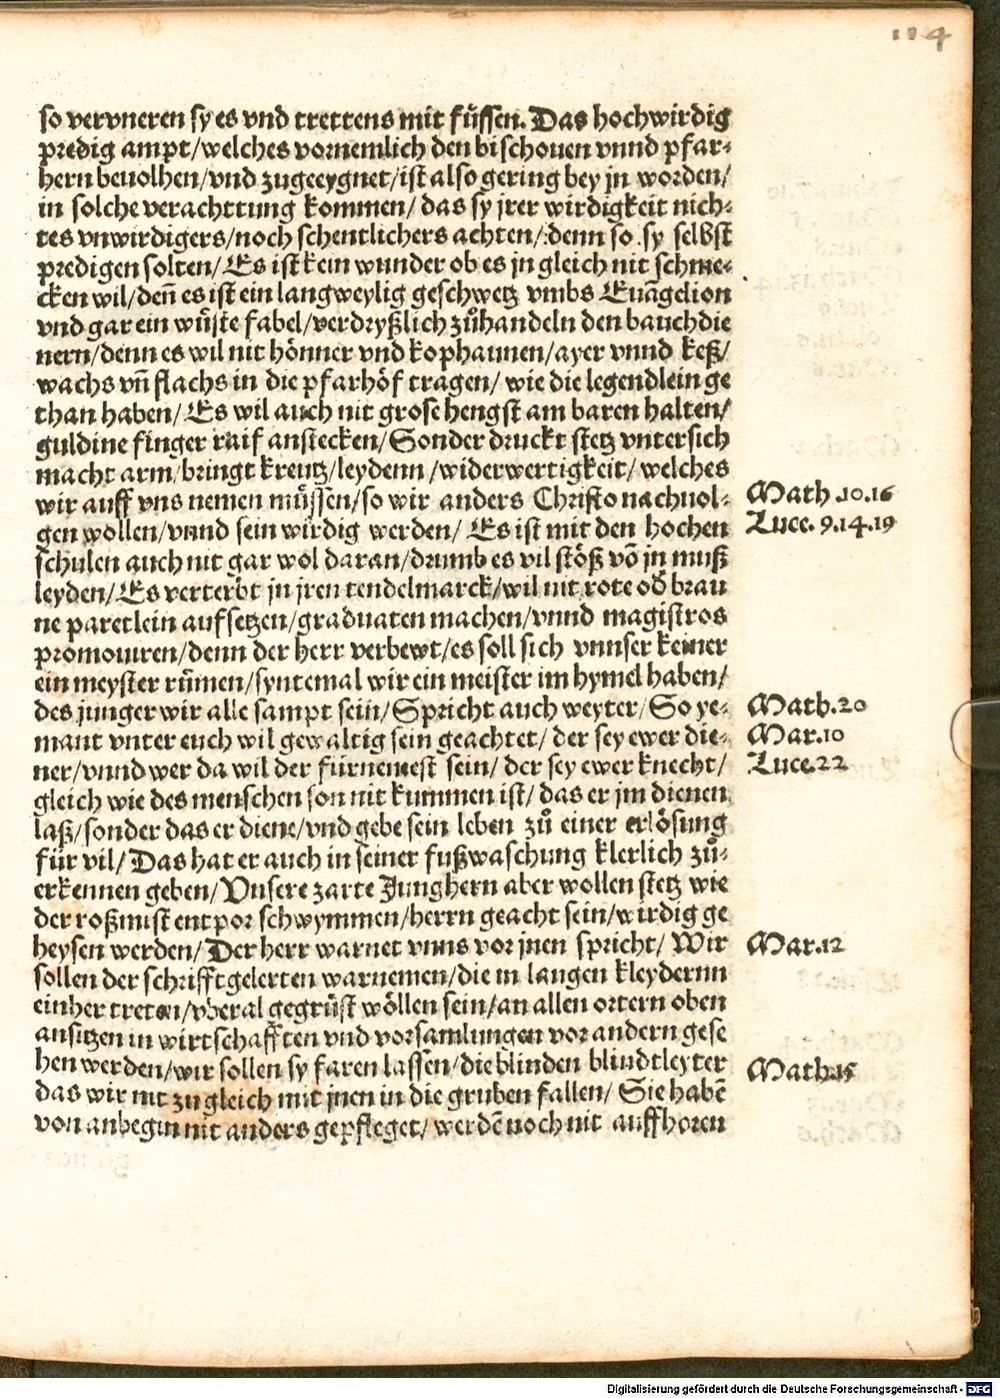 114
so vervneren sy es vnd trettens mit fůssen. Das hochwirdig
predig ampt/welches vornemlich den bischouen vnnd pfar⸗
hern beuolhen/vnd zugeeygnet/ist also gering bey jn worden/
in solche verachttung kommen/ das sy jrer wirdigkeit nich⸗
tes vnwirdigers/noch schentlichers achten/ denn so sy selbst
predigen solten/ Es ist kein wunder ob es jn gleich nit schme⸗
cken wil/den̄ es ist ein langweylig geschwetz vmbs Euāgelion
vnd gar ein wůste fabel/verdryßlich zůhandeln den bauchdie
nern/denn es wil nit hönner vnd kophaunen/ayer vnnd keß/
wachs vn̄ flachs in die pfarhöf tragen/ wie die legendlein ge
than haben/ Es wil auch nit grose hengst am baren halten/
guldine finger raif anstecken/ Sonder druckt stetz vntersich
macht arm/bringt kreutz/leydenn/widerwertigkeit/welches
wir auff vns nemen můssen/so wir anders Christo nachuol⸗
Math .10.16
gen wollen/vnnd sein wirdig werden/ Es ist mit den hochen
Luce. 9.14.19
schulen auch nit gar wol daran/drumb es vil stöß vō jn muß
leyden/Es verterbt jn jren tendelmarck/wil nit rote od̄ brau
ne paretlein aufsetzen/graduaten machen/vnnd magistros
promouiren/denn der herr verbewt/es soll sich vnnser keiner
ein meyster růmen/syntemal wir ein meister im hymel haben/
des junger wir alle sampt sein/Spricht auch weyter/So ye⸗
Math.20
mant vnter euch wil gewaltig sein geachtet/ der sey ewer die⸗
Mar.10
ner/vnnd wer da wil der fürnemest sein/ der sey ewer knecht/
Luce.22
gleich wie des menschen son nit kummen ist/ das er jm dienen
laß/sonder das er diene/vnd gebe sein leben zů einer erlösung
für vil/Das hat er auch in seiner fußwaschung klerlich zů⸗
erkennen geben/Vnsere zarte Junghern aber wollen stetz wie
der roßmist entpor schwymmen/herrn geacht sein/wirdig ge
heysen werden/Der herr warnet vnns vor jnen spricht/ Wir
Mar.12
sollen der schrifftgelerten warnemen/die in langen kleydernn
einher treten/vberal gegrůst wöllen sein/an allen ortern oben
ansitzen in wirtschafften vnd vorsamlungen vor andern gese
hen werden/wir sollen sy faren lassen/die blinden blindtleyter
Math.15
das wir nit zu gleich mit jnen in die gruben fallen/ Sie habē
von anbegin nit anders gepfleget/ werdē noch nit auffhoren
Digitalisierung gefördert durch die Deutsche Forschungsgemeinschaft - DFG